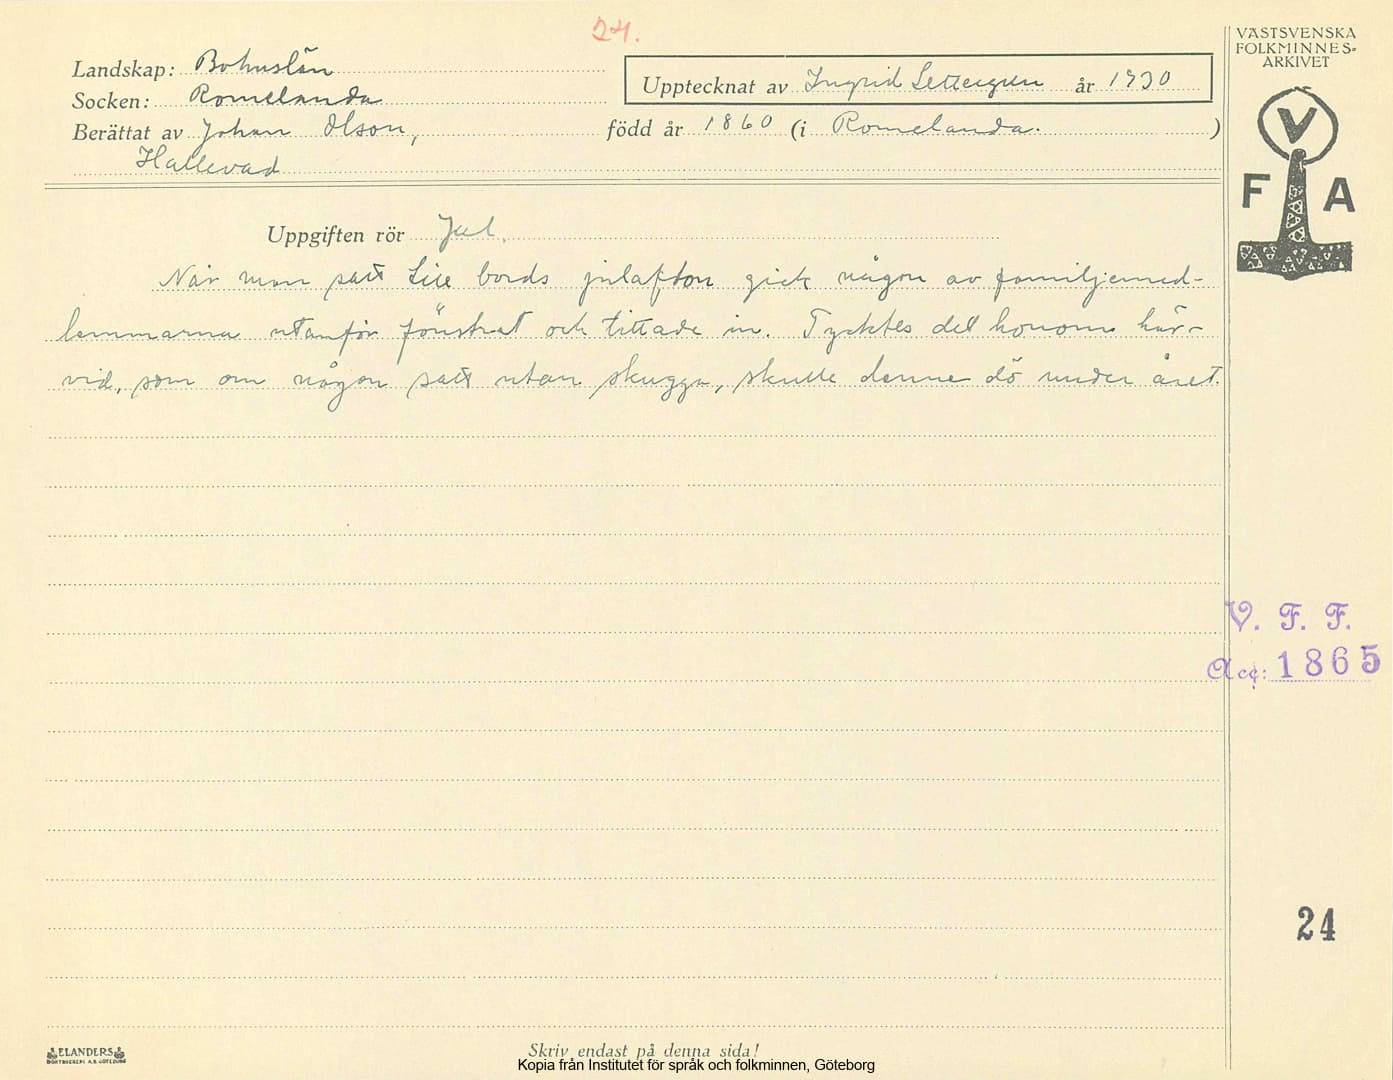 24.
VÄSTSVENSKA
FOLKMINNES-
ARKIVET
Landskap: Bohuslän
Upptecknat av Ingrid Settergren år 1930
Socken: Romelanda
Berättat av Johan Olson, född år 1860 (i Romelanda. )
Hallevad
V
F A
Uppgiften rör Jul.
När man satt till bords julafton gick någon av familjemed-
lemmarna utanför fönstret och tittade in. Tycktes det honom här-
vid, som om någon satt utan skugga, skulle denne dö under året.
V. F. F.
Acc: 1865
24
ELANDERS
BOKTRYCKERI A.B. GÖTEBORG
Skriv endast på denna sida!
Kopia från Institutet för språk och folkminnen, Göteborg